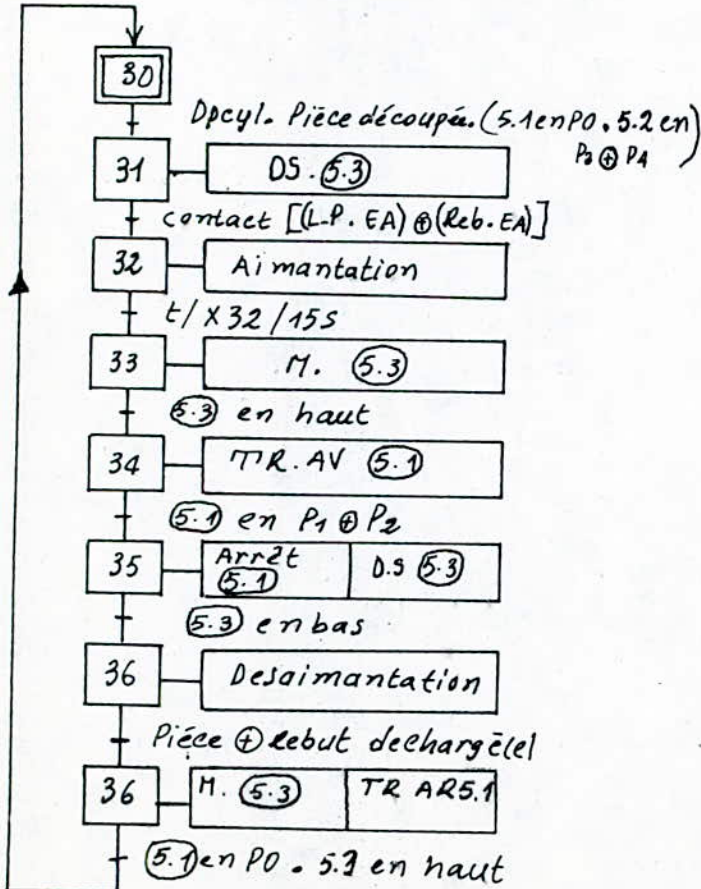 30
Dpcyl. Pièce découpée. (5.1 en PO . 5.2 en
P3 ⊕ P4)
31 DS. 5.3
contact [(L.P. EA) ⊕ (Reb. EA)]
32 Aimantation
t/ X32 / 15s
33 M. 5.3
5.3 en haut
34 TR. AV 5.1
5.1 en P1 ⊕ P2
35 Arrêt 5.1 D.S 5.3
5.3 en bas
36 Desaimantation
Pièce ⊕ Rebut dechargé(e)
36 M. 5.3 TR AR5.1
5.1 en PO . 5.3 en haut